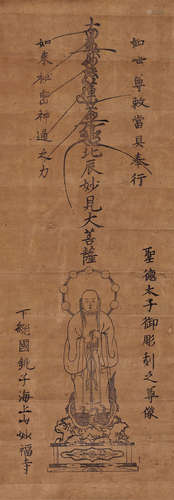 如世尊敕當具奉行
南無妙法蓮華經北辰妙見大菩薩
如來秘密神通之力
聖德太子御彫刻之尊像
下總國銚子海上山妙福寺